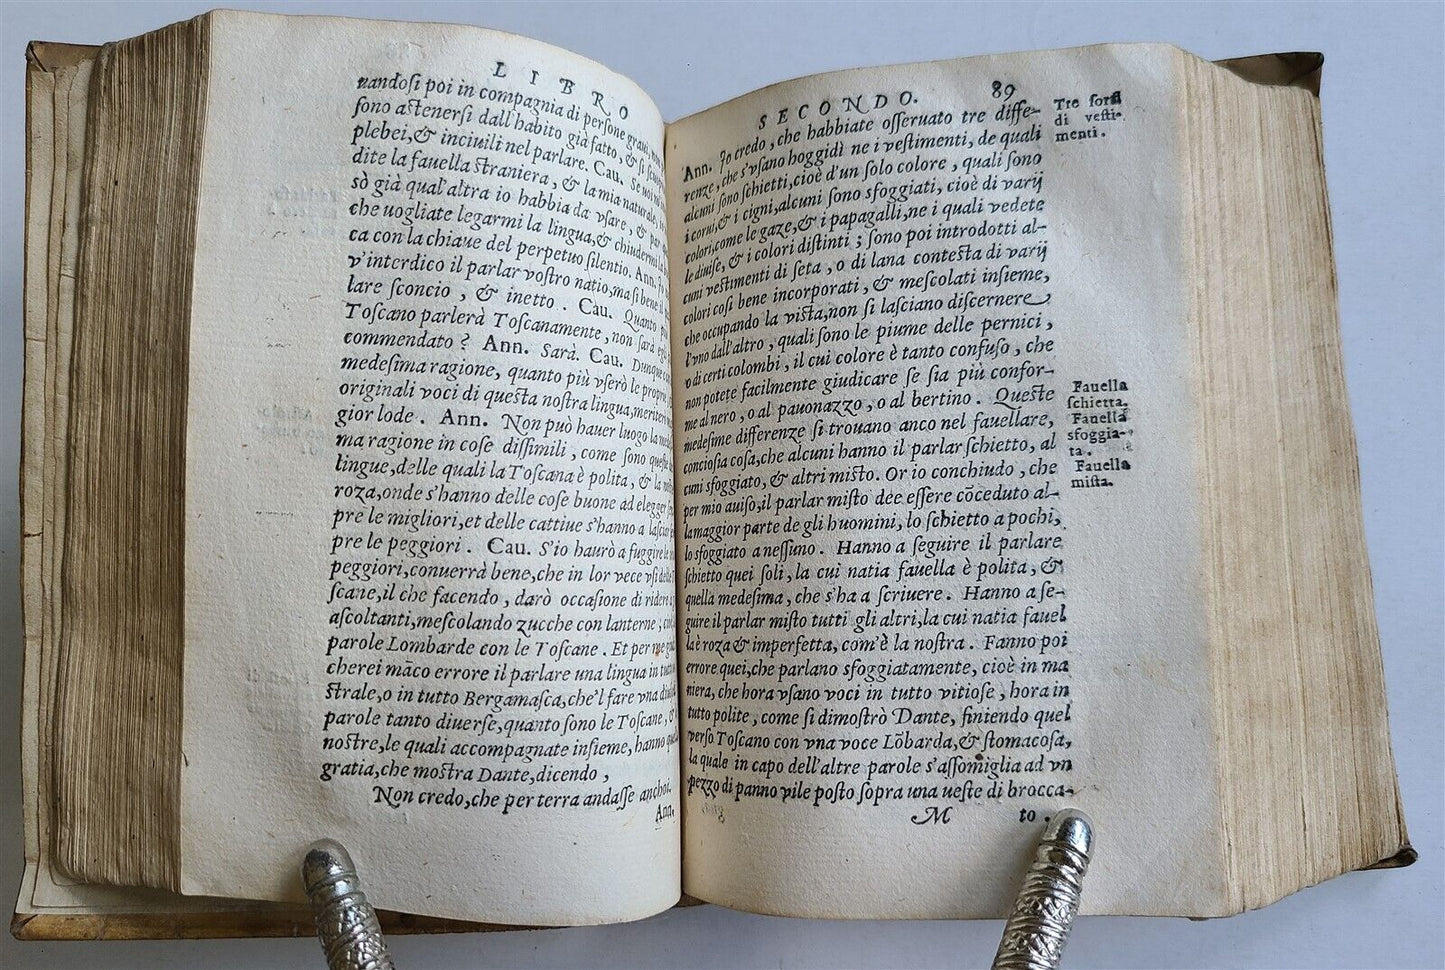 LIBRO
nandosi poi in compagnia di persone graui,
sono astenersi dall'habito già fatto, & si
plebei,& inciuili nel parlare. Cau. Se uoi
dite la fauella straniera, & la mia naturale,
sò già qual'altra io habbia da vsare, & par
che uogliate legarmi la lingua,& chiudermi la
ca con la chiaue del perpetuo silentio. Ann.
v'interdico il parlar vostro natio,ma si bene il
lare sconcio, & inetto. Cau. Quanto
Toscano parlerà Toscanamente, non sarà egli
commendato? Ann. Sarà. Cau. Dunque
medesima ragione, quanto più vserò le proprie,
originali voci di questa nostra lingua,meriterò
gior lode. Ann. Non può hauer luogo la
ma ragione in cose dissimili, come sono queste
lingue,delle quali la Toscana è polita, & la
roza,onde s'hanno delle cose buone ad elegger
pre le migliori,et delle cattiue s'hanno a lasciar
pre le peggiori. Cau. S'io haurò a fuggire le
peggiori,conuerrà bene,che in lor vece vsi delle
scane,il che facendo, darò occasione di ridere a
ascoltanti,mescolando zucche con lanterne,
parole Lombarde con le Toscane. Et per me
cherei māco errore il parlare una lingua in tutto
strale,o in tutto Bergamasca,che'l fare vna
parole tanto diuerse,quanto sono le Toscane, &
nostre,le quali accompagnate insieme, hanno
gratia,che mostra Dante,dicendo,
Non credo,che per terra andasse anchoi.
Ann.
SECONDO. 89
Ann. Io credo, che habbiate osseruato tre diffe-
renze, che s'vsano hoggidì ne i vestimenti, de quali
alcuni sono schietti,cioè d'un solo colore, quali sono
i corui,& i cigni,alcuni sono sfoggiati, cioè di varij
colori,come le gaze,& i papagalli,ne i quali vedete
le diuise, & i colori distinti; sono poi introdotti al-
cuni vestimenti di seta, o di lana contesta di varij
colori cosi bene incorporati, & mescolati insieme,
che occupando la vista,non si lasciano discernere
l'vno dall'altro, quali sono le piume delle pernici,
o di certi colombi, il cui colore è tanto confuso, che
non potete facilmente giudicare se sia più confor-
me al nero, o al pauonazzo, o al bertino. Queste
medesime differenze si trouano anco nel fauellare,
conciosia cosa,che alcuni hanno il parlar schietto, al
cuni sfoggiato, & altri misto. Or io conchiudo, che
per mio auiso,il parlar misto dee essere cōceduto al-
la maggior parte de gli huomini, lo schietto a pochi,
lo sfoggiato a nessuno. Hanno a seguire il parlare
schietto quei soli, la cui natia fauella è polita, &
quella medesima, che s'ha a scriuere. Hanno a se-
guire il parlar misto tutti gli altri,la cui natia fauel
la è roza & imperfetta, com'è la nostra. Fanno poi
errore quei,che parlano sfoggiatamente, cioè in ma
niera, che hora vsano voci in tutto vitiose, hora in
tutto polite, come si dimostrò Dante, finiendo quel
verso Toscano con vna voce Lōbarda,& stomacosa,
la quale in capo dell'altre parole s'assomiglia ad vn
pezzo di panno vile posto sopra una ueste di brocca-
M to.
Tre sorti
di vesti-
menti.
Fauella
schietta.
Fauella
sfoggia-
ta.
Fauella
mista.